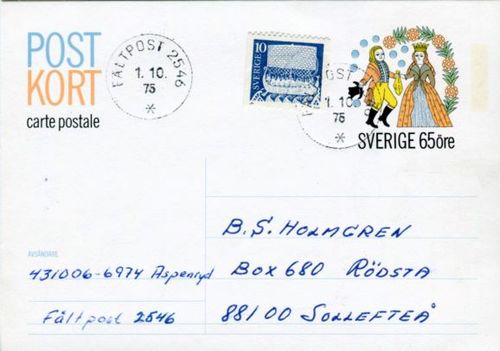 POST
KORT
carte postale
FÄLTPOST 2546
1. 10.
75
*
SVERIGE 10
FÄLTPOST
1. 10.
75
*
SVERIGE 65 öre
AVSÄNDARE
431006-6974 Aspenryd
Fältpost 2546
B.S. HOLMGREN
BOX 680 RÖDSTA
88100 SOLLEFTEÅ